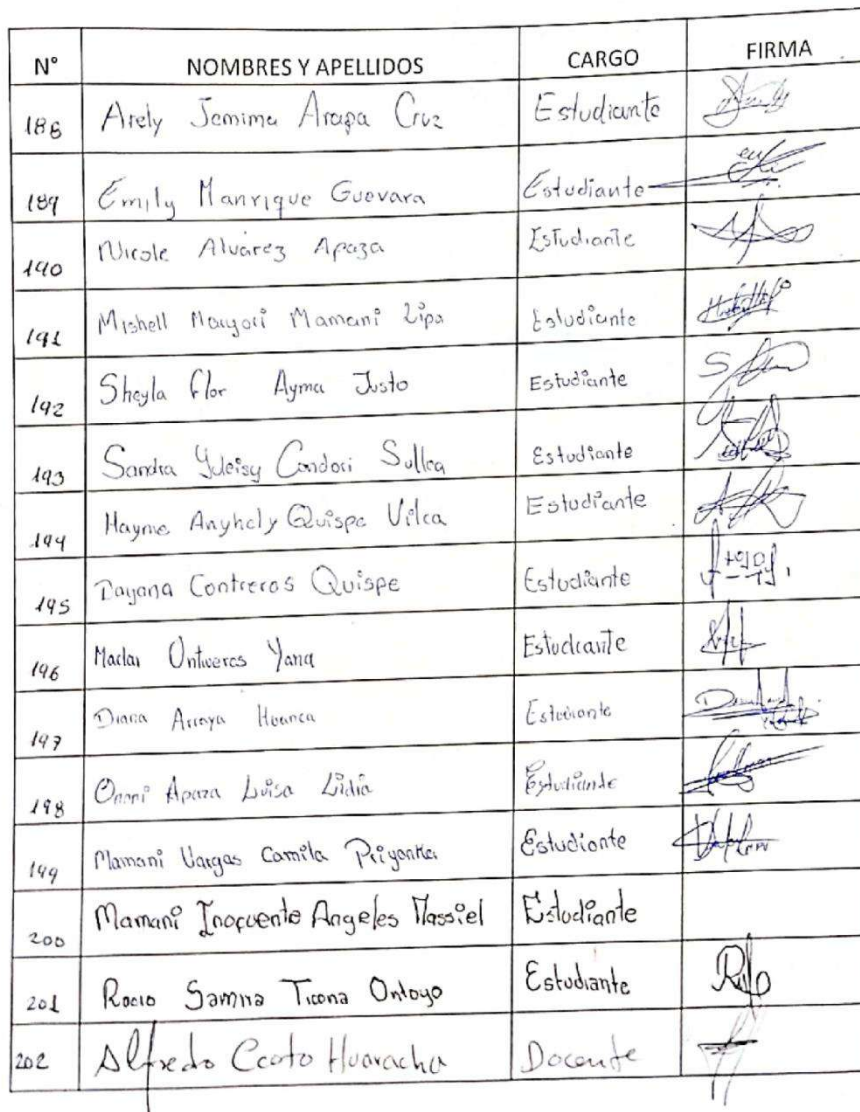 N° NOMBRES Y APELLIDOS CARGO FIRMA
188 Arely Jemima Arapa Cruz Estudiante
189 Emily Manrique Guevara Estudiante
190 Nicole Alvarez Apaza Estudiante
191 Mishell Mayori Mamani Lipa Estudiante
192 Sheyla Flor Ayma Justo Estudiante
193 Sandra Yuleisy Condori Sullca Estudiante
194 Hayme Anyhely Quispe Vilca Estudiante
195 Dayana Contreras Quispe Estudiante
196 Ontiveros Yana Estudiante
197 Diana Arraya Huanca Estudiante
198 Apaza Luisa Lidia Estudiante
199 Mamani Vargas Camila Priyanka Estudiante
200 Mamani Inofuente Angeles Massiel Estudiante
201 Rocio Samna Ticona Ontoyo Estudiante
202 Alfredo Ccoto Huaracha Docente